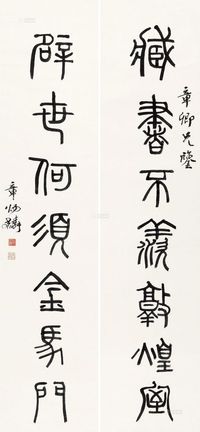 藏書不羨敦煌室
章卿兄鑒
辟世何須金馬門
章炳麟